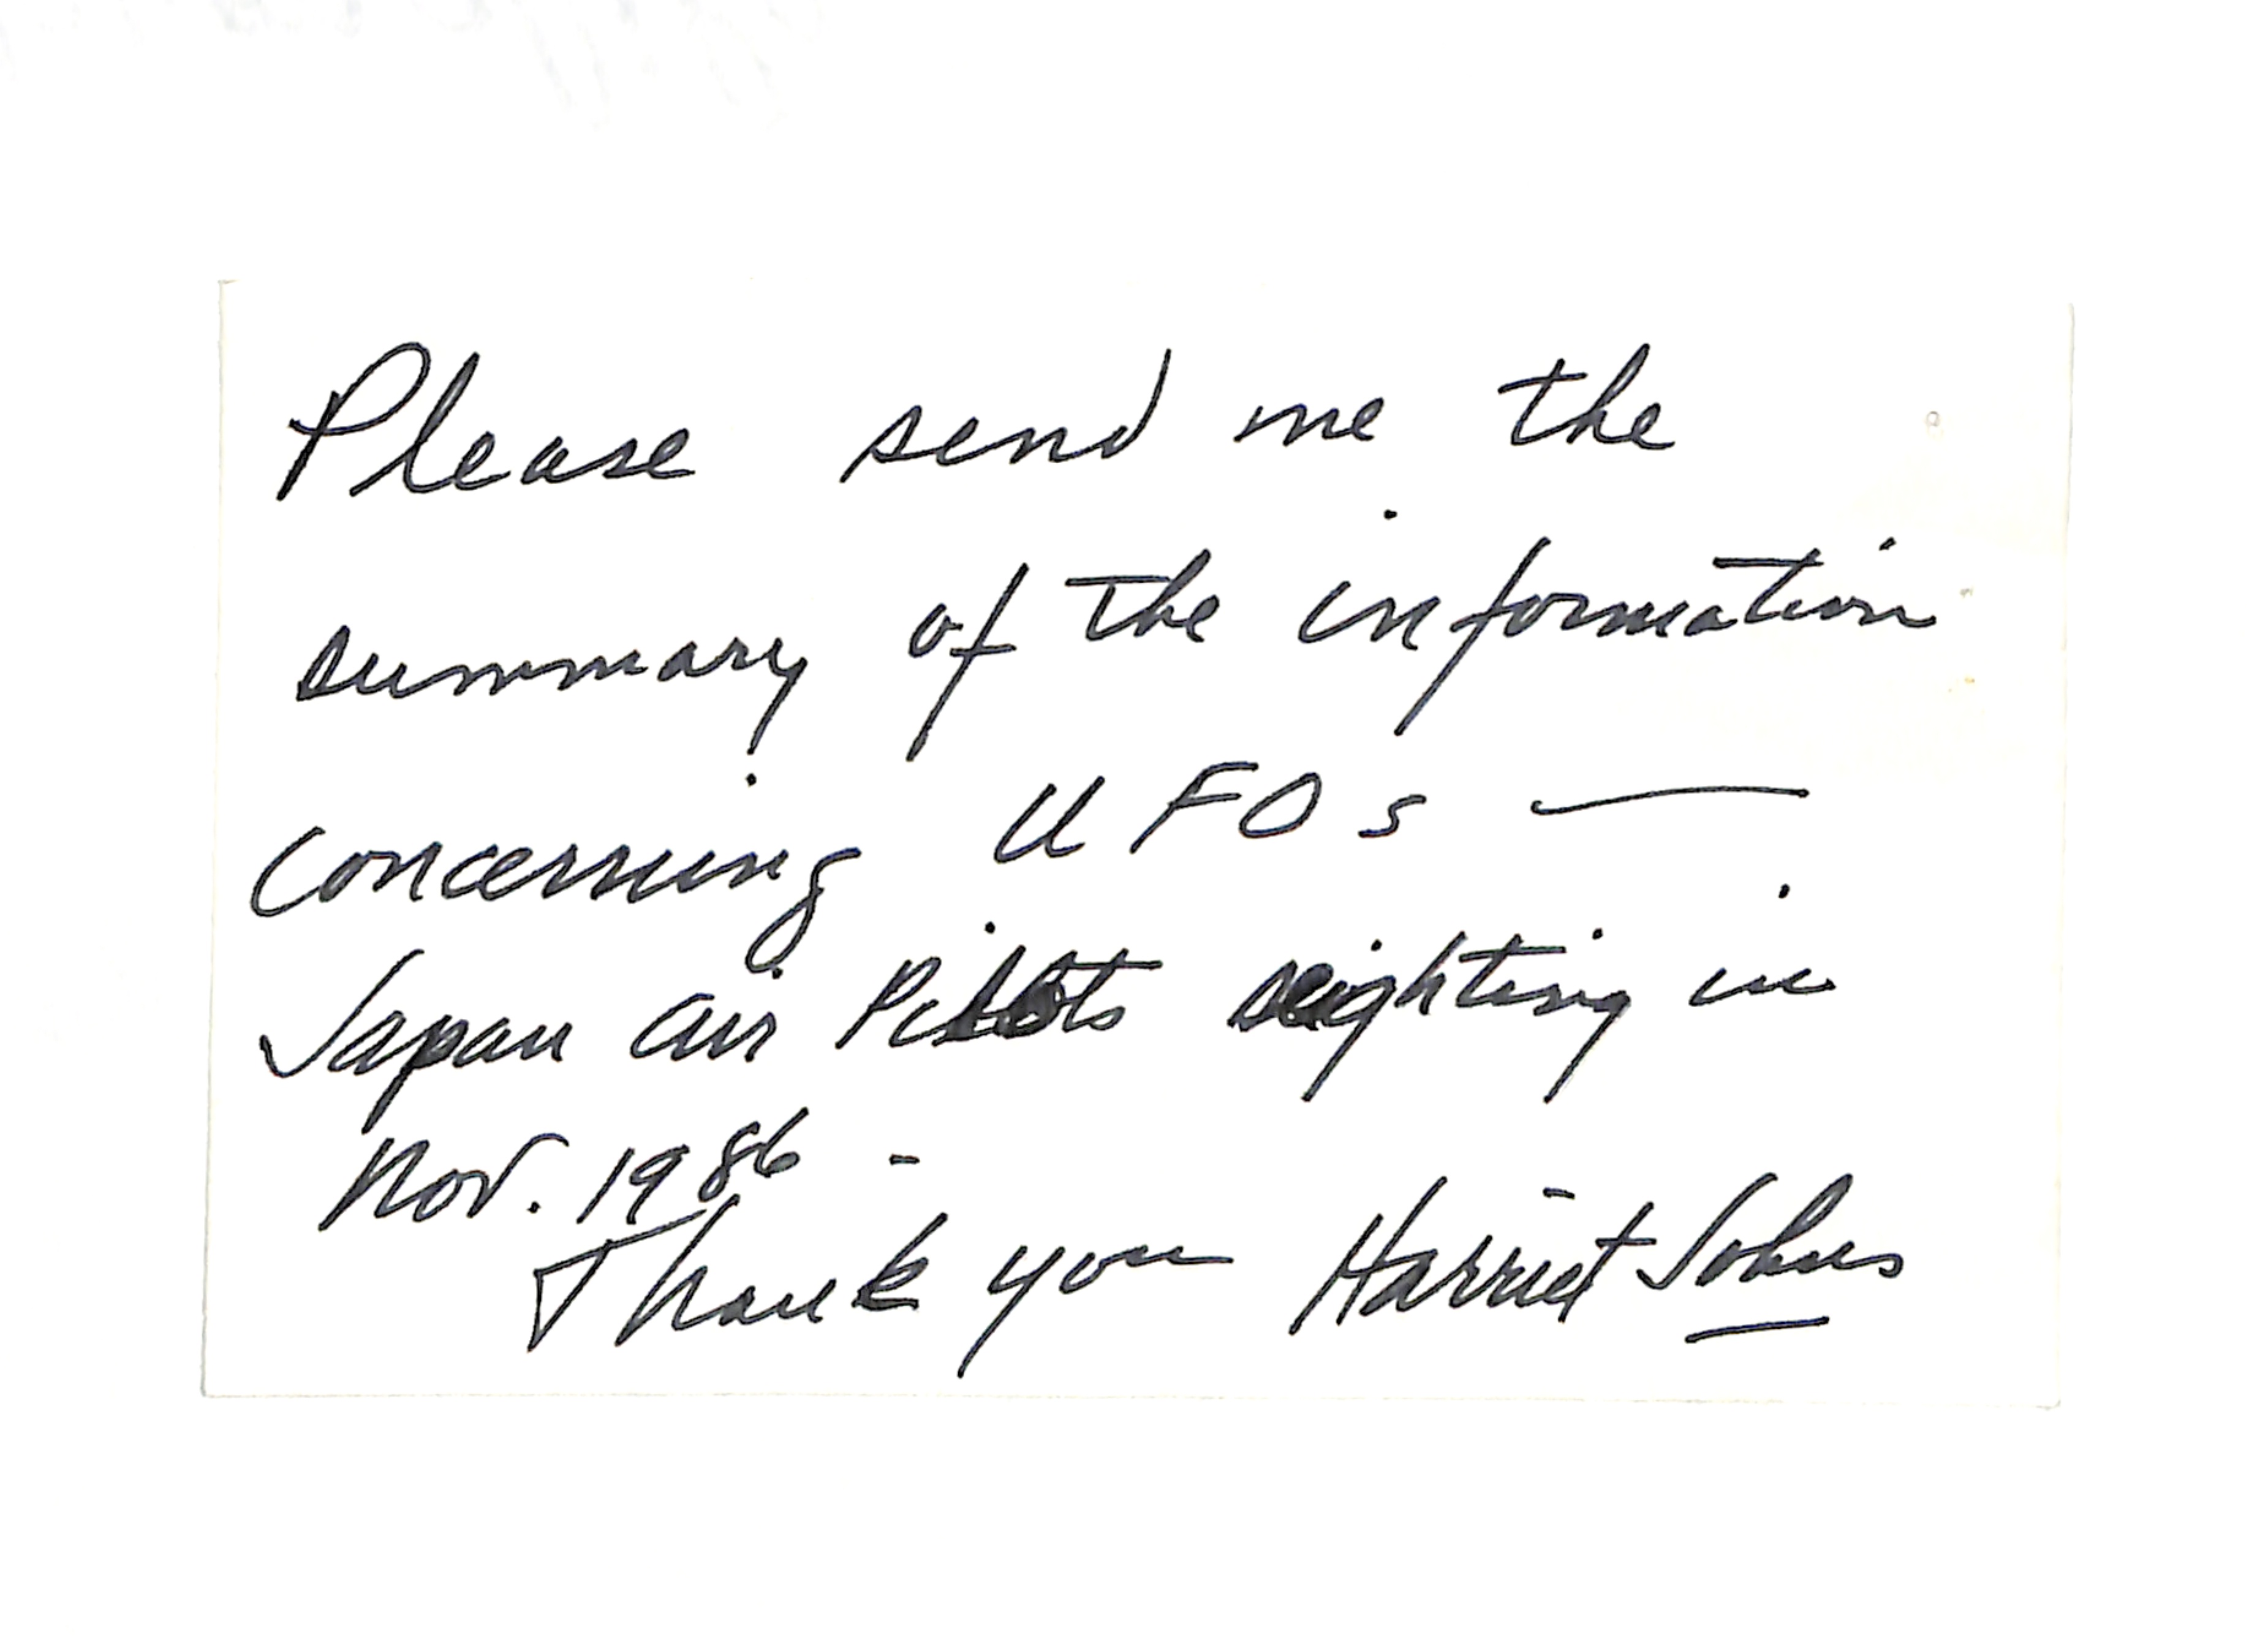 Please send me the
summary of the information
concerning UFOs —
Japan air Pilots sighting in
Nov. 1986 -
Thank you Harriet Johns